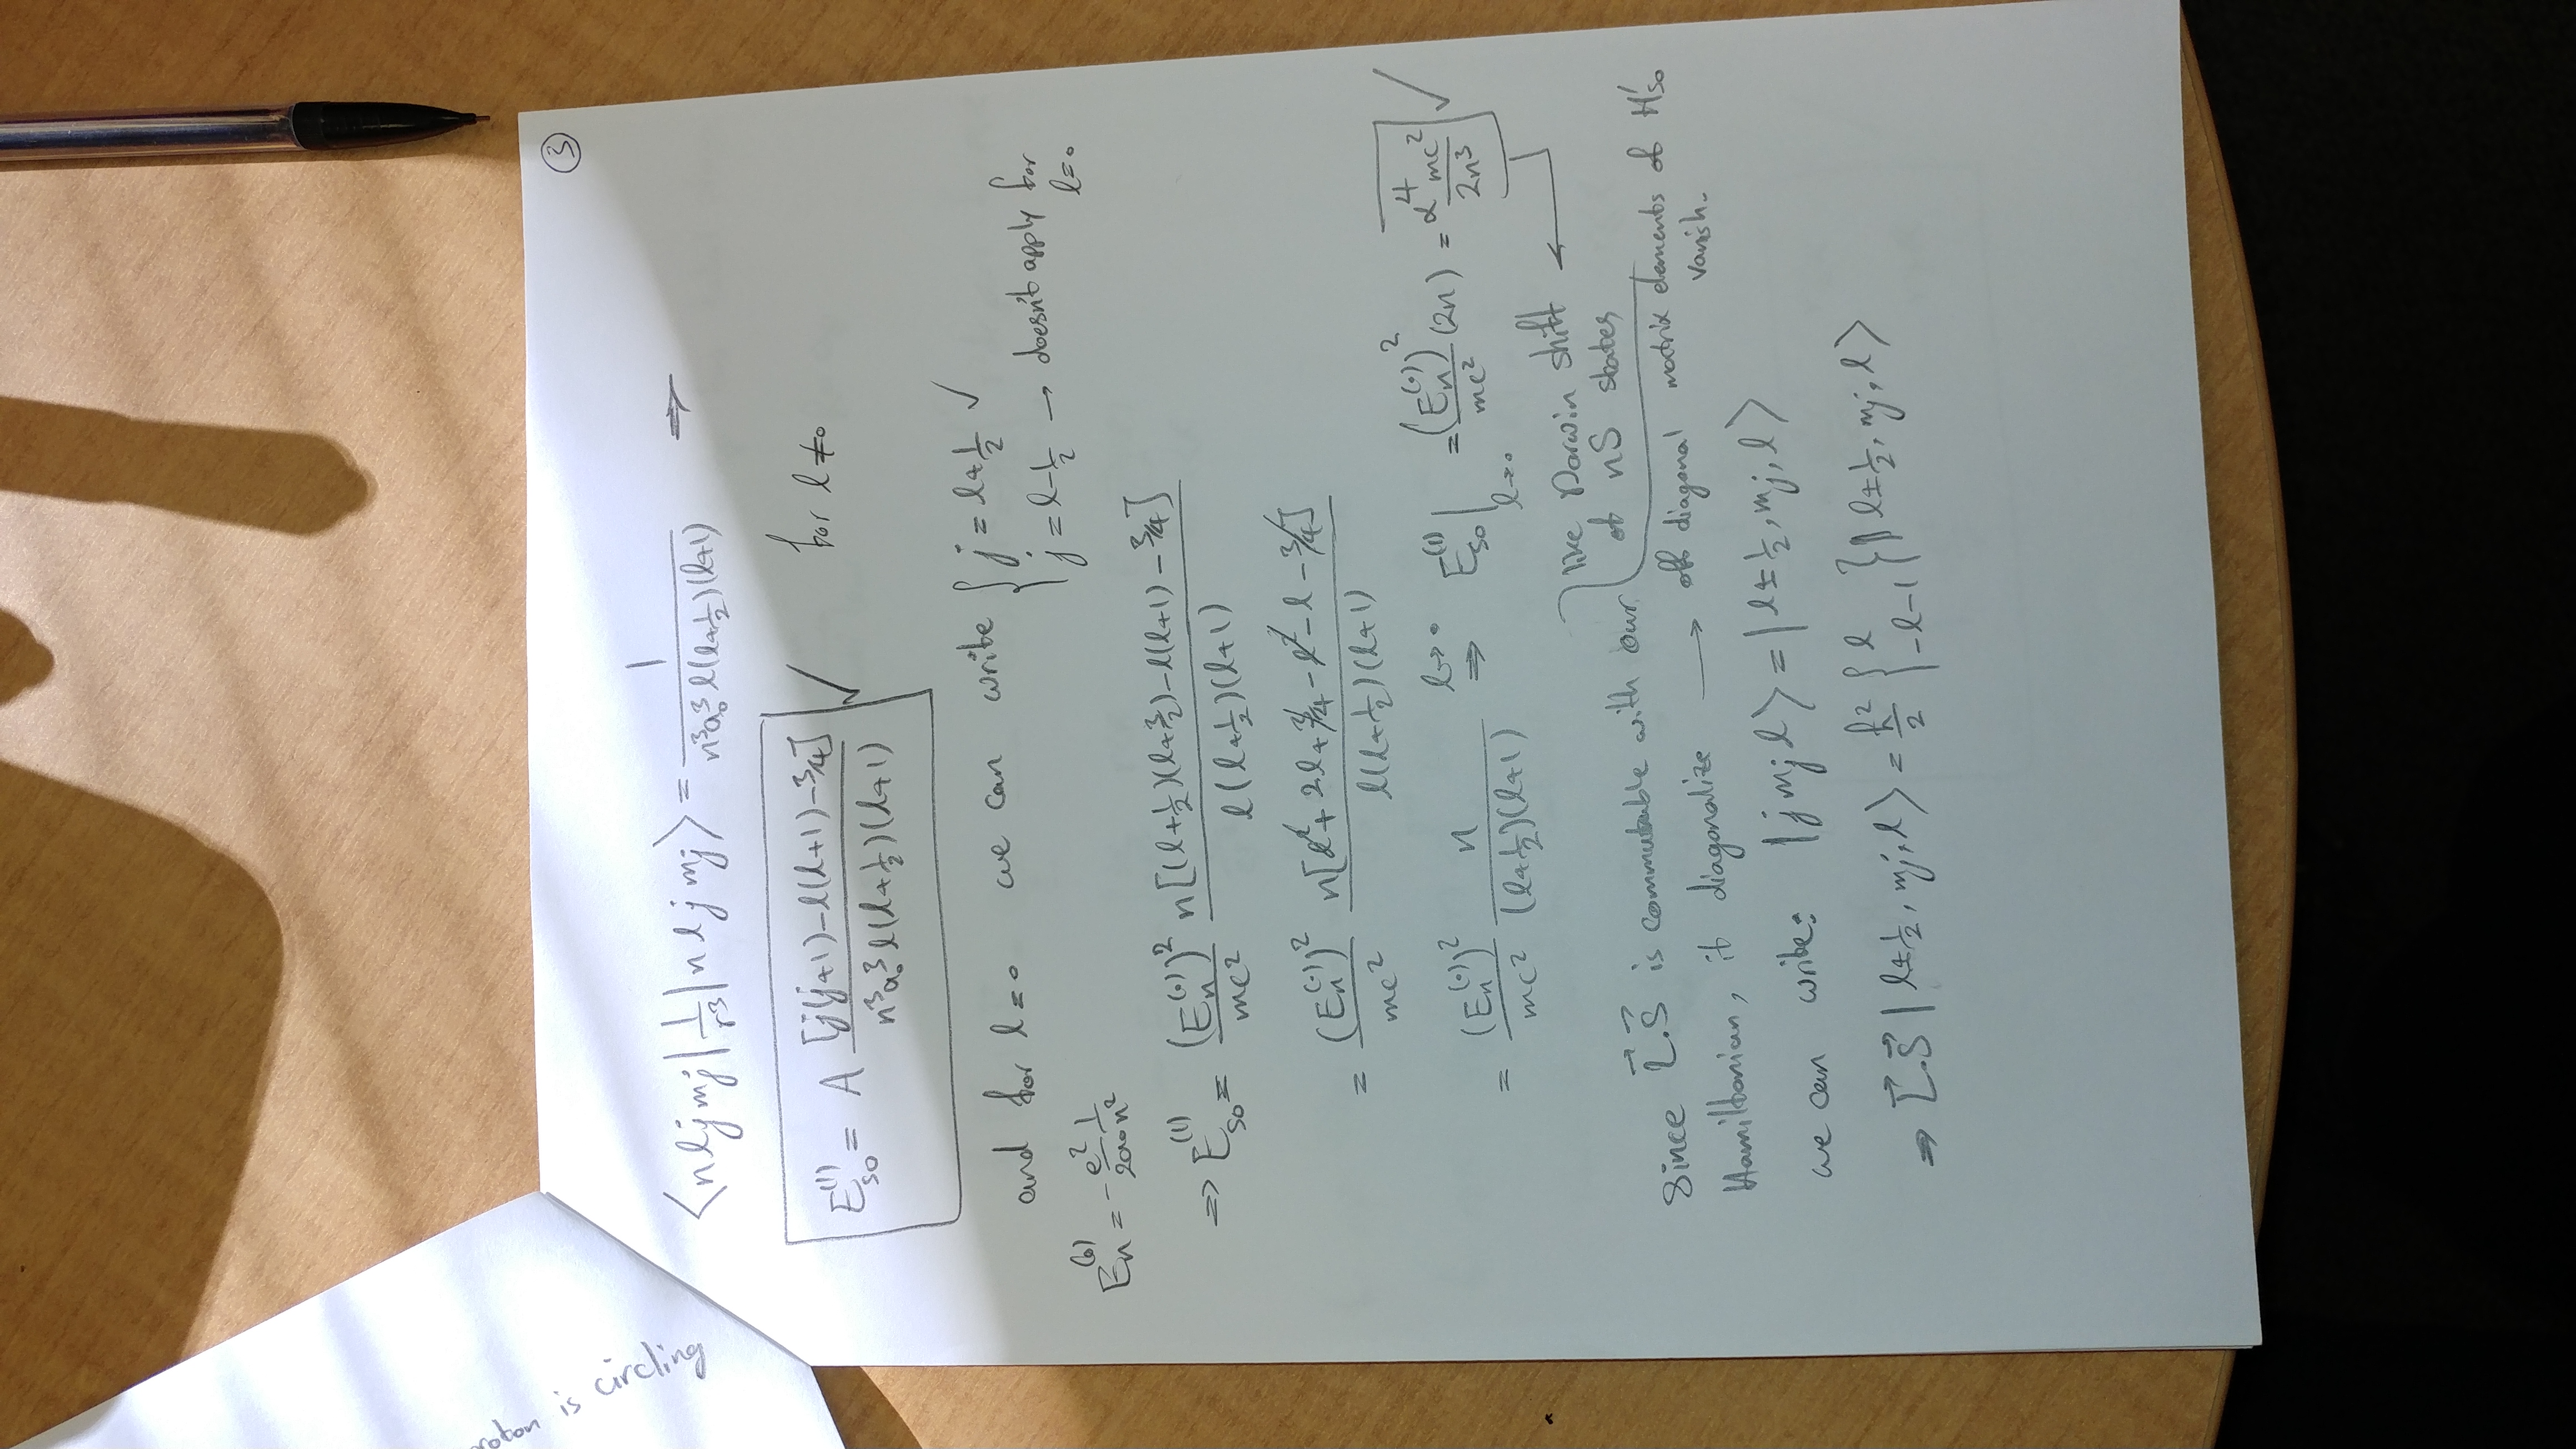 ③
roton is circling
⟨n l j mj | 1/r³ | n l j mj⟩ = 1 / n³a₀³ l(l+½)(l+1) ⇒
E_so^(1) = A [j(j+1)−l(l+1)−3/4] / n³a₀³ l(l+½)(l+1) ✓ for l≠0
and for l=0 we can write { j = l+½ ✓
j = l−½ → doesn't apply for
l=0
E_n^(0) = −e²/2a₀ 1/n²
⇒ E_so^(1) = (E_n^(0))²/mc² n[(l+½)(l+3/2)−l(l+1)−3/4] / l(l+½)(l+1)
= (E_n^(0))²/mc² n[l²+2l+3/4−l²−l−3/4] / l(l+½)(l+1)
= (E_n^(0))²/mc² n/(l+½)(l+1) l→0 ⇒ E_so^(1)|l→0 = (E_n^(0))²/mc² (2n) = α⁴mc²/2n³ ✓
like Darwin shift
of nS states
Since L⃗.S⃗ is commutable with our
Hamiltonian, it diagonalize → off diagonal matrix elements of H'so
vanish.
we can write: |j mj l⟩ = |l±½, mj, l⟩
⇒ L⃗.S⃗ |l±½, mj, l⟩ = ħ²/2 { l
−l−1 } |l±½, mj, l⟩